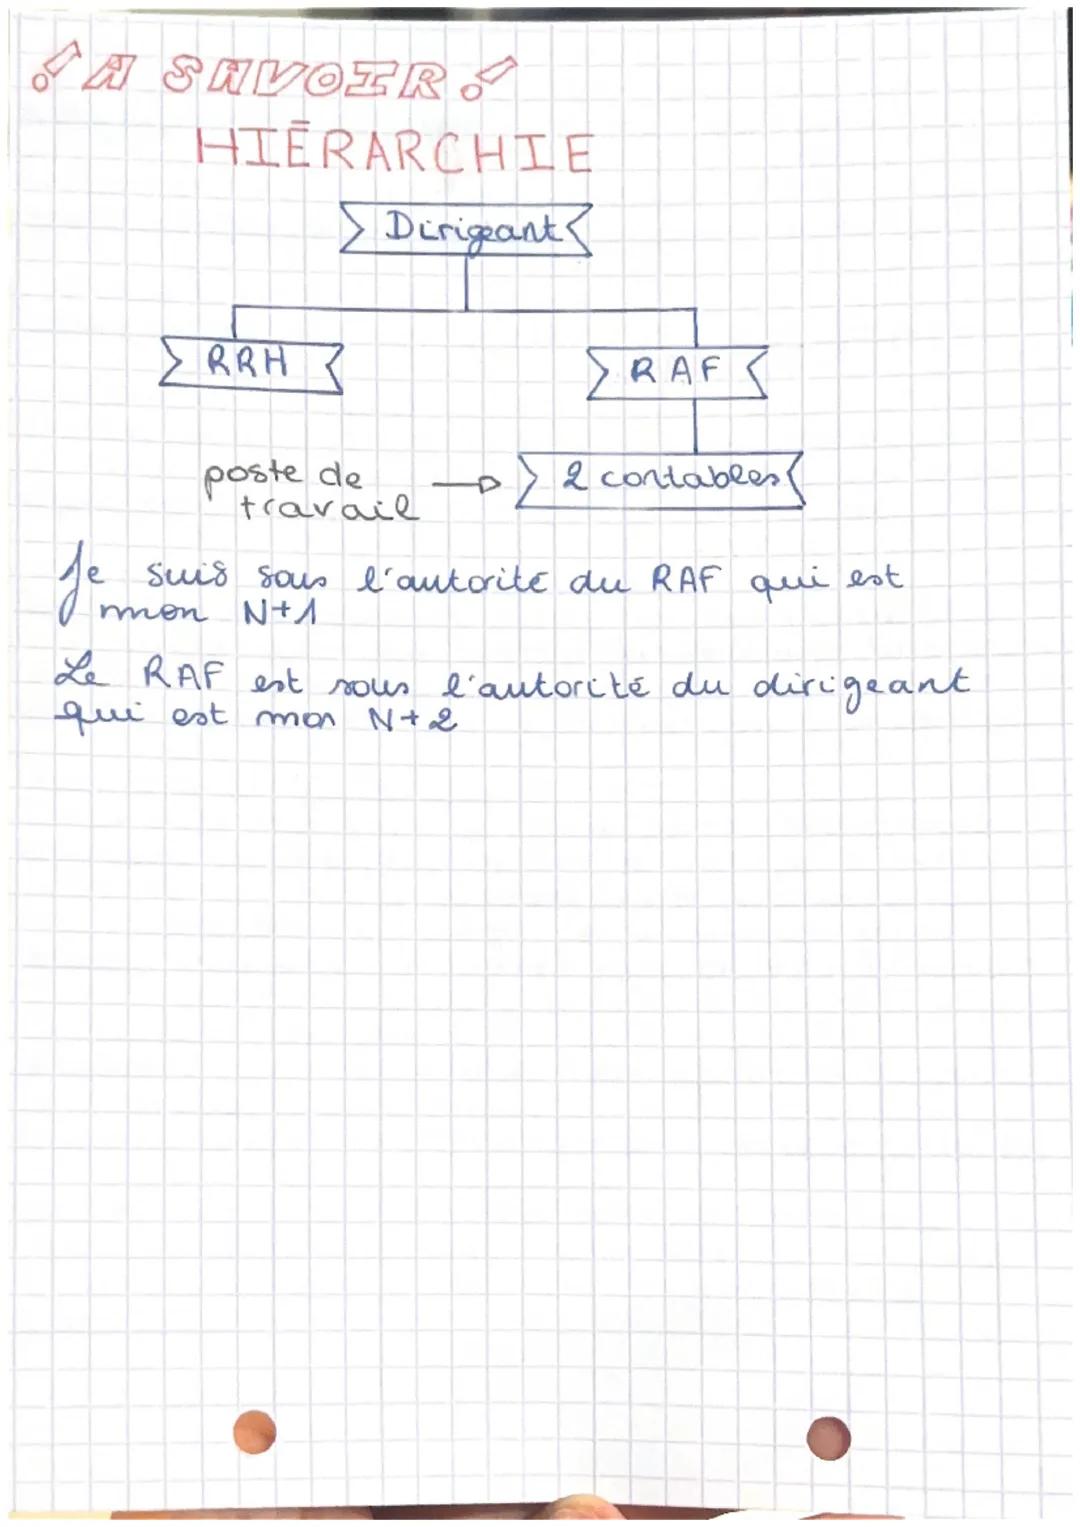 ! A SAVOIR !
HIÉRARCHIE
Dirigeant
RRH
RAF
poste de
travail
2 contables
Je suis sous l'autorité du RAF qui est
mon N+1
Le RAF est sous l'autorité du dirigeant
qui est mon N+2